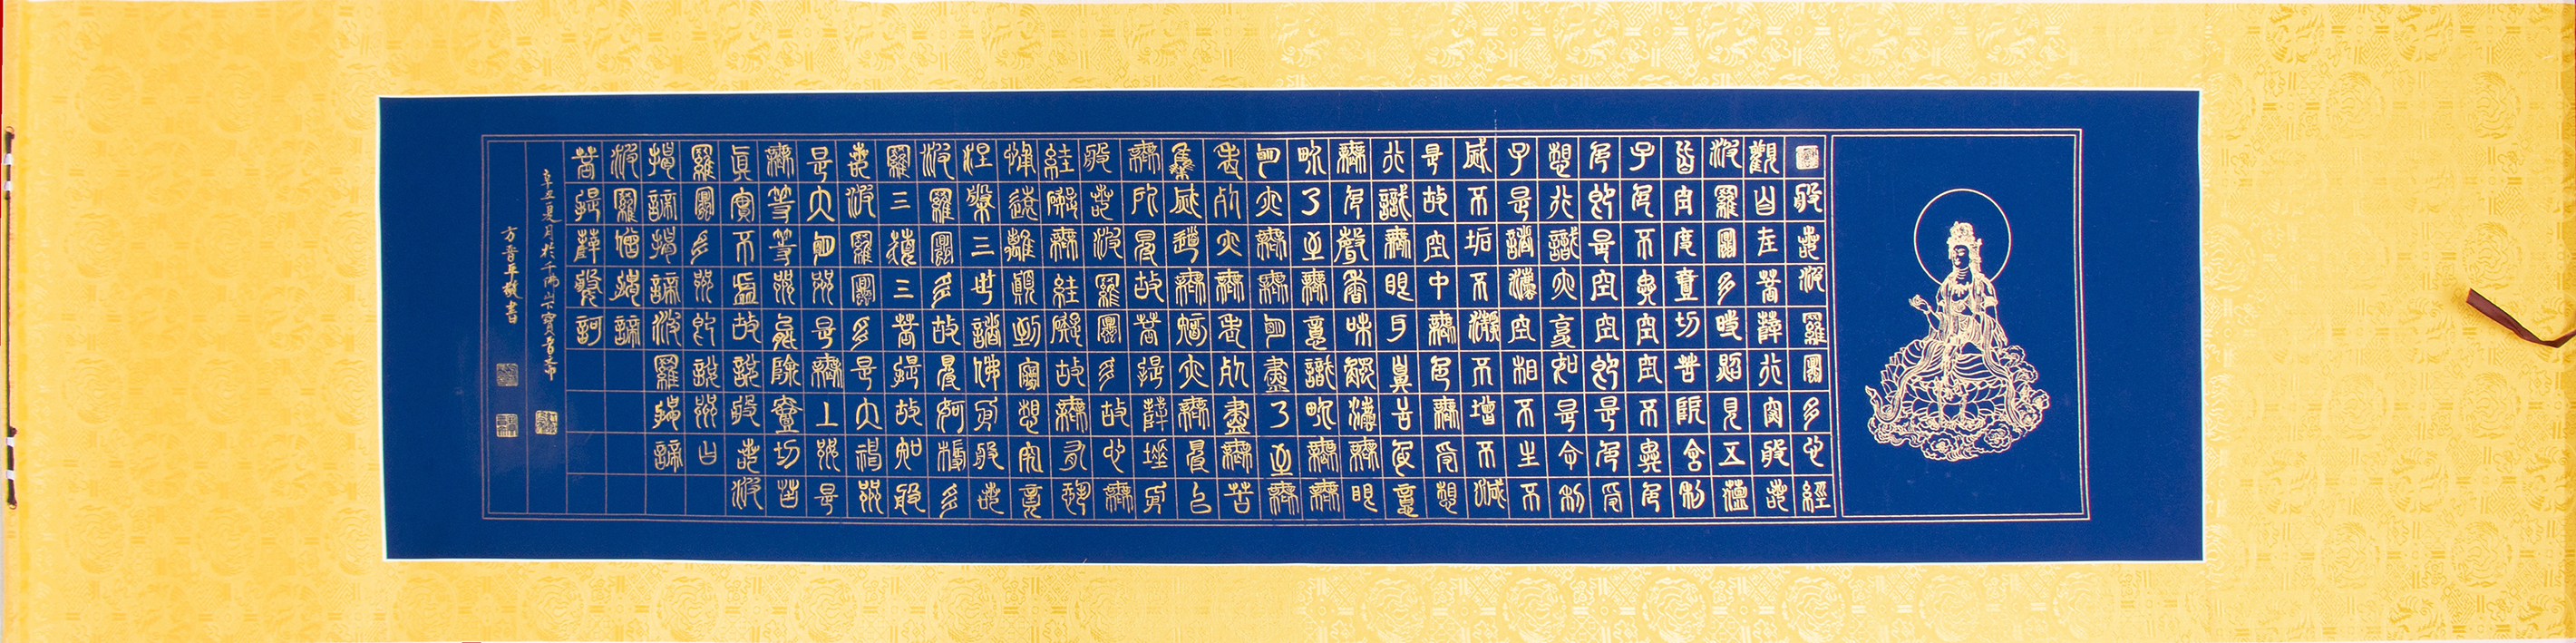 般若波羅蜜多心經
觀自在菩薩行深般若
波羅蜜多時照見五蘊
皆空度壹切苦厄舍利
子色不異空空不異色
色即是空空即是色受
想行識亦復如是舍利
子是諸灋空相不生不
滅不垢不瀞不增不減
是故空中無色無受想
行識無眼耳鼻舌身意
無色聲香味觸灋無眼
界乃至無意識界無無
明亦無無明盡乃至無
老死亦無老死盡無苦
集滅道無智亦無得以
無所得故菩提薩埵依
般若波羅蜜多故心無
罣礙無罣礙故無有恐
怖遠離顛倒夢想究竟
涅槃三世諸佛依般若
波羅蜜多故得阿耨多
羅三藐三菩提故知般
若波羅蜜多是大神咒
是大明咒是無上咒是
無等等咒能除壹切苦
真實不虛故說般若波
羅蜜多咒即說咒曰
揭諦揭諦波羅揭諦
波羅僧揭諦
菩提薩婆訶
辛丑夏月於千佛山
方晉平敬書